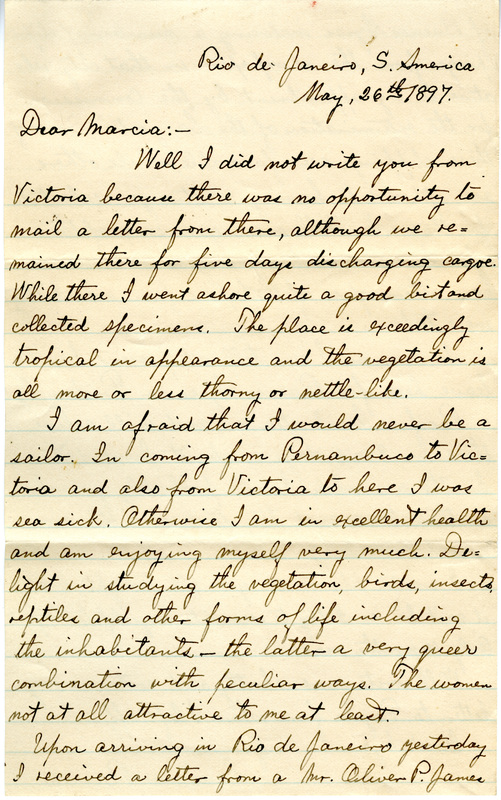 Rio de Janeiro, S. America
May, 26th 1897.
Dear Marcia:-
Well I did not write you from
Victoria because there was no opportunity to
mail a letter from there, although we re=
mained there for five days discharging cargoe.
While there I went ashore quite a good bit and
collected specimens. The place is exceedingly
tropical in appearance and the vegetation is
all more or less thorny or nettle-like.
I am afraid that I would never be a
sailor. In coming from Pernambuco to Vic=
toria and also from Victoria to here I was
sea sick. Otherwise I am in excellent health
and am enjoying myself very much. De=
light in studying the vegetation, birds, insects,
reptiles and other forms of life including
the inhabitants - the latter a very queer
combination with peculiar ways. The women
not at all attractive to me at least.
Upon arriving in Rio de Janeiro yesterday
I received a letter from a Mr. Oliver P. James